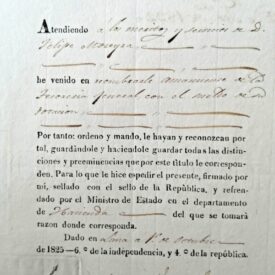 Atendiendo a los meritos y servicios de d.
Felipe Moreyra
he venido en nombrarle amanuense de la
general con el sueldo de su
Por tanto: ordeno y mando, le hayan y reconozcan por
tal, guardándole y haciendole guardar todas las distinc-
ciones y preeminencias que por este titulo le correspon-
den. Para lo que le hice expedir el presente, firmado por
mi, sellado con el sello de la República, y refren-
dado por el Ministro de Estado en el departamento
de Hacienda del que se tomará
razon donde corresponda.
Dado en Lima á 1.º de octubre
de 1825—6.º de la independencia, y 4.º de la república.